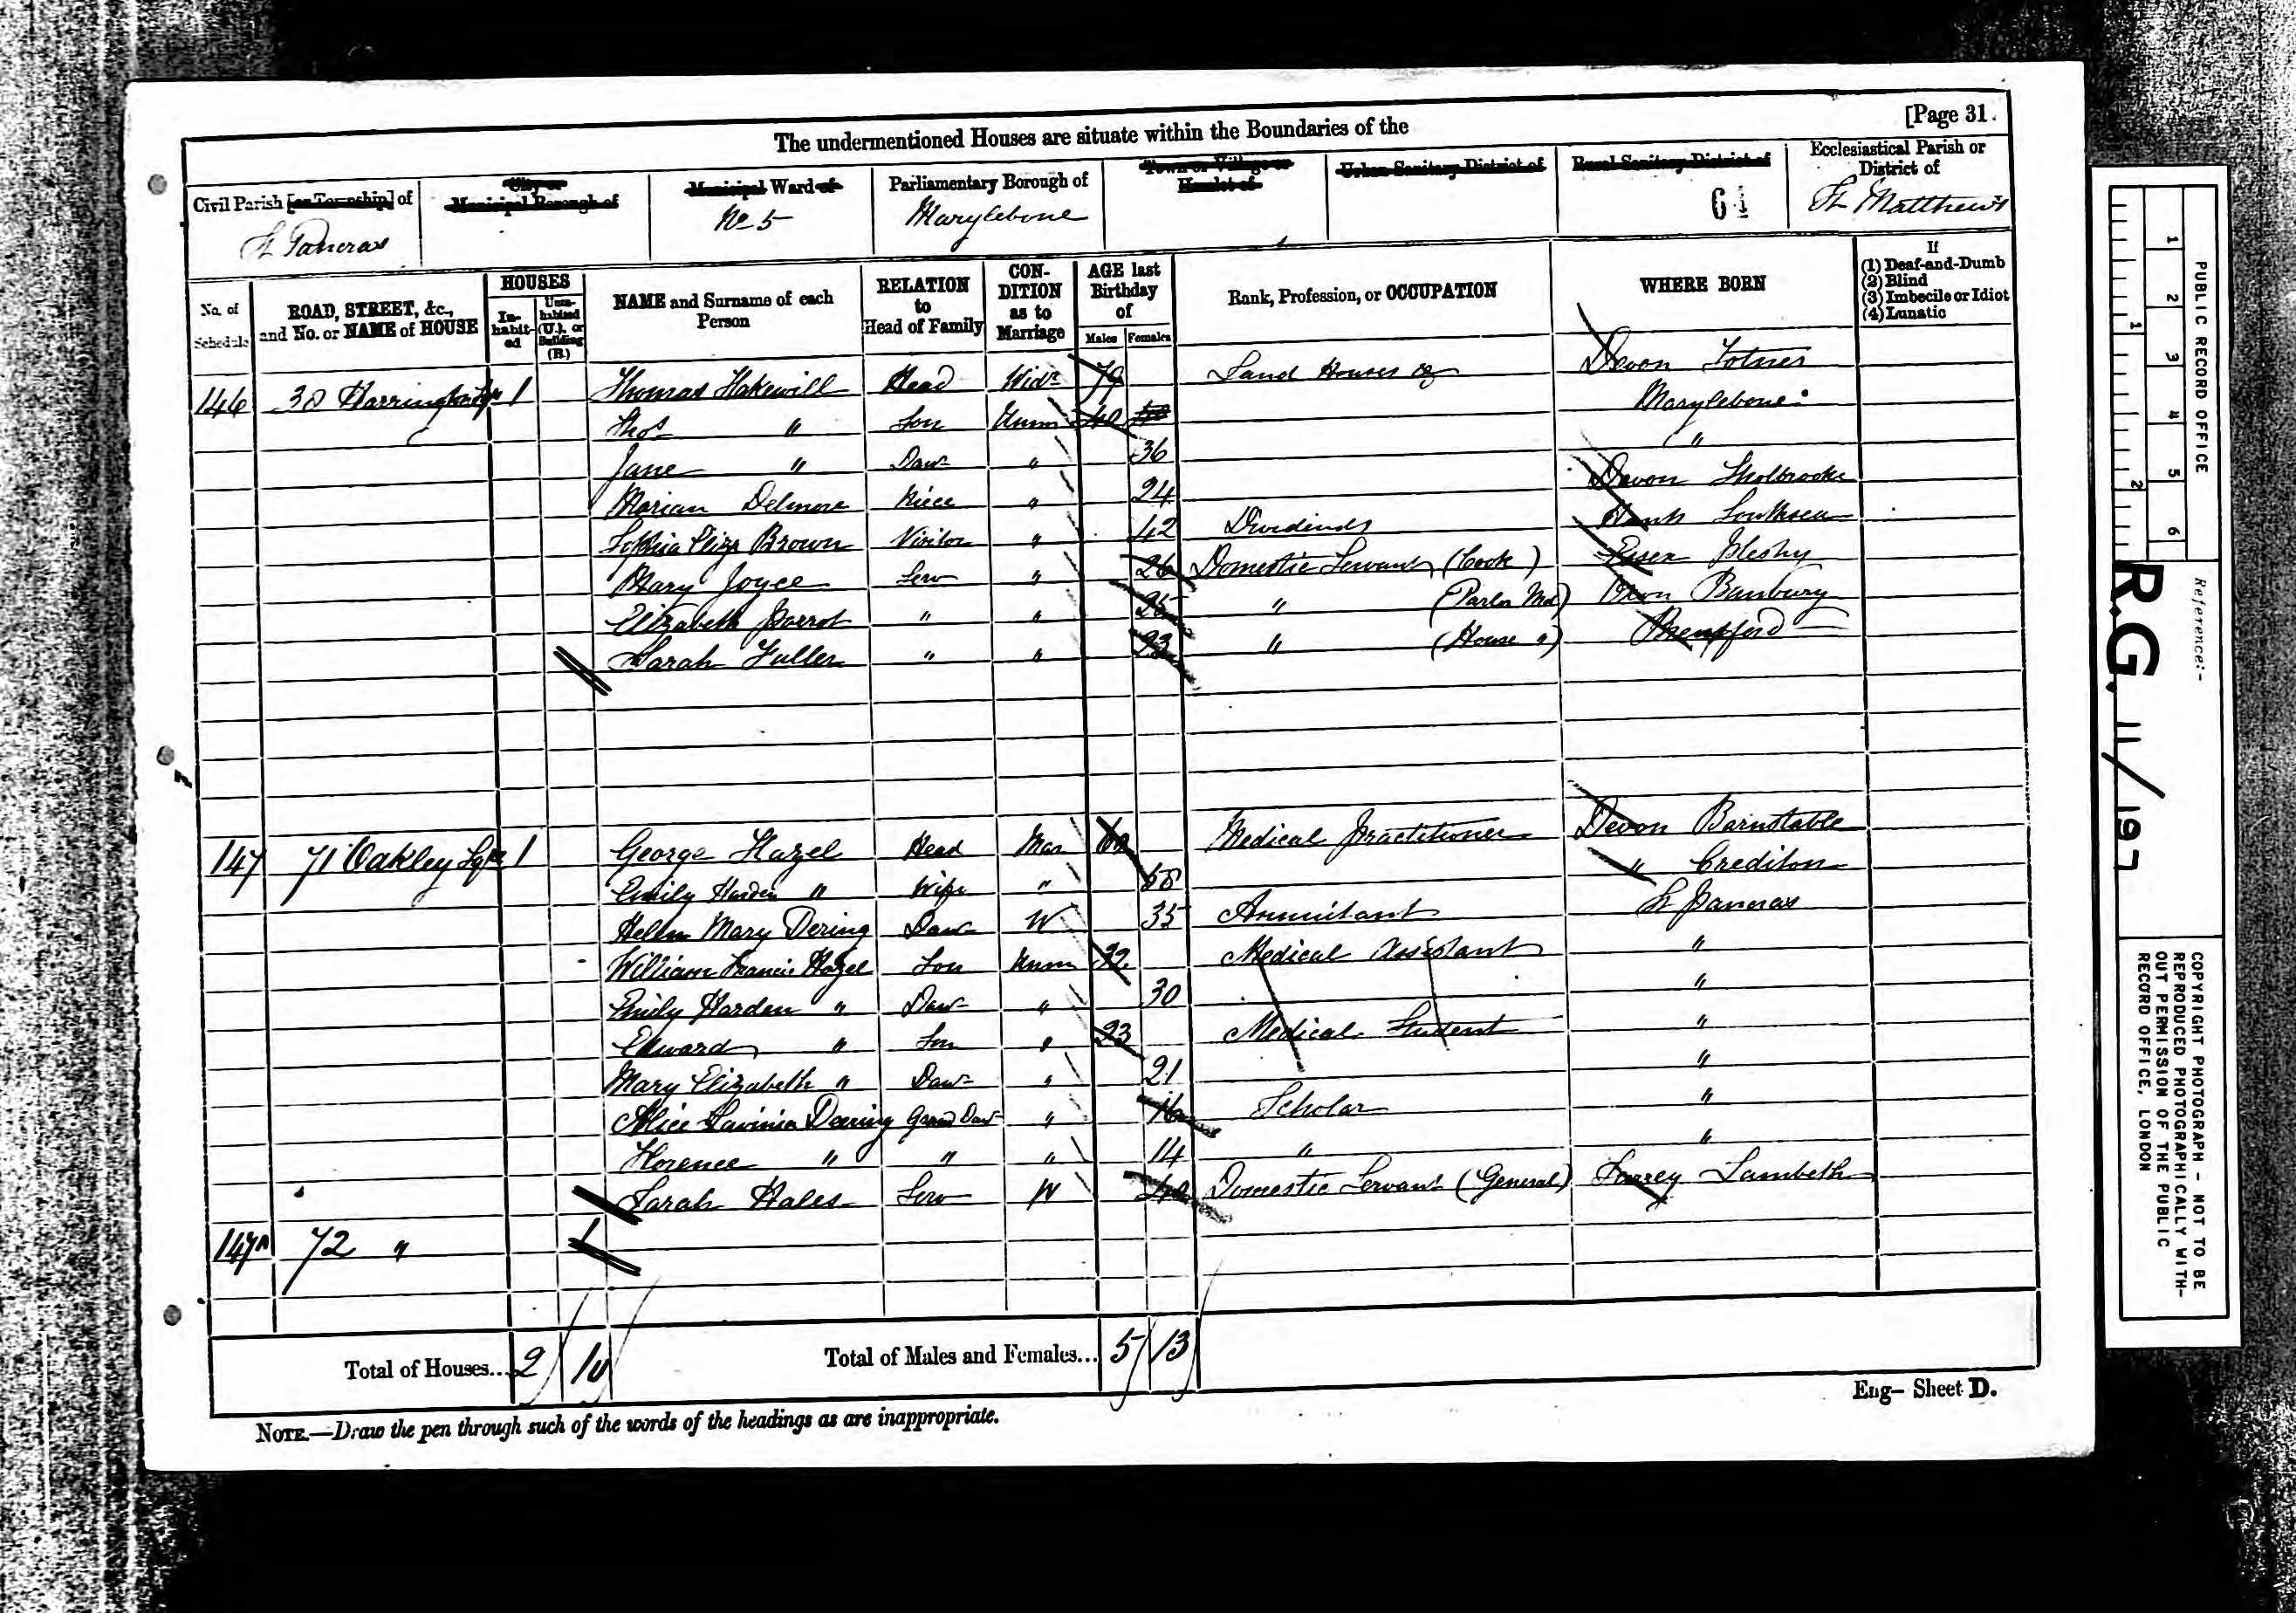 [Page 31.
The undermentioned Houses are situate within the Boundaries of the
Civil Parish [or Township] of
St Pancras
City or Municipal Borough of
Municipal Ward of
No 5
Parliamentary Borough of
Marylebone
Town or Village or Hamlet of
Urban Sanitary District of
Rural Sanitary District of
64
Ecclesiastical Parish or District of
St Matthews
No. of Schedule
ROAD, STREET, &c., and No. or NAME of HOUSE
HOUSES
In-habit-ed
Unin-habited (U.), or Building (B.)
NAME and Surname of each Person
RELATION to Head of Family
CON-DITION as to Marriage
AGE last Birthday of
Males Females
Rank, Profession, or OCCUPATION
WHERE BORN
If
(1) Deaf-and-Dumb
(2) Blind
(3) Imbecile or Idiot
(4) Lunatic
146 30 Harrington Sqre 1 Thomas Hakewill Head Widr 79 Land Houses &c Devon Totnes
Thos " Son Unm 40 40 Marylebone
Jane " Daur " 36 "
Marian Delmore Niece " 24 Devon
Sophia Eliza Brown Visitor " 42 Dividends Hants Southsea
Mary Joyce Serv " 26 Domestic Servant (Cook) Essex Pleshy
Elizabeth Parrot " " 25 " (Parlor Md) Oxon Banbury
Sarah Fuller " " 23 " (House ") Brentford
147 71 Oakley Sqre 1 George Hazel Head Mar Medical Practitioner Devon Barnstable
Emily Harden " Wife " " Crediton
Helen Mary Dering Daur W 35 Annuitant St Pancras
William Francis Hazel Son Unm 32 Medical Assistant "
Emily Harden " Daur " 30 "
Edward " Son " 23 Medical Student "
Mary Elizabeth " Daur " 21 "
Alice Lavinia Deering Grand Daur " 16 Scholar "
Florence " " " 14 " "
Sarah Hales Serv W 40 Domestic Servant (General) Surrey Lambeth
147A 72 " 1
Total of Houses... 2 1U
Total of Males and Females... 5 13
Eng— Sheet D.
NOTE.—Draw the pen through such of the words of the headings as are inappropriate.
1 2 3 4 5 6
1 2
PUBLIC RECORD OFFICE
Reference:-
R.G. 11/197
COPYRIGHT PHOTOGRAPH - NOT TO BE
REPRODUCED PHOTOGRAPHICALLY WITH-
OUT PERMISSION OF THE PUBLIC
RECORD OFFICE, LONDON